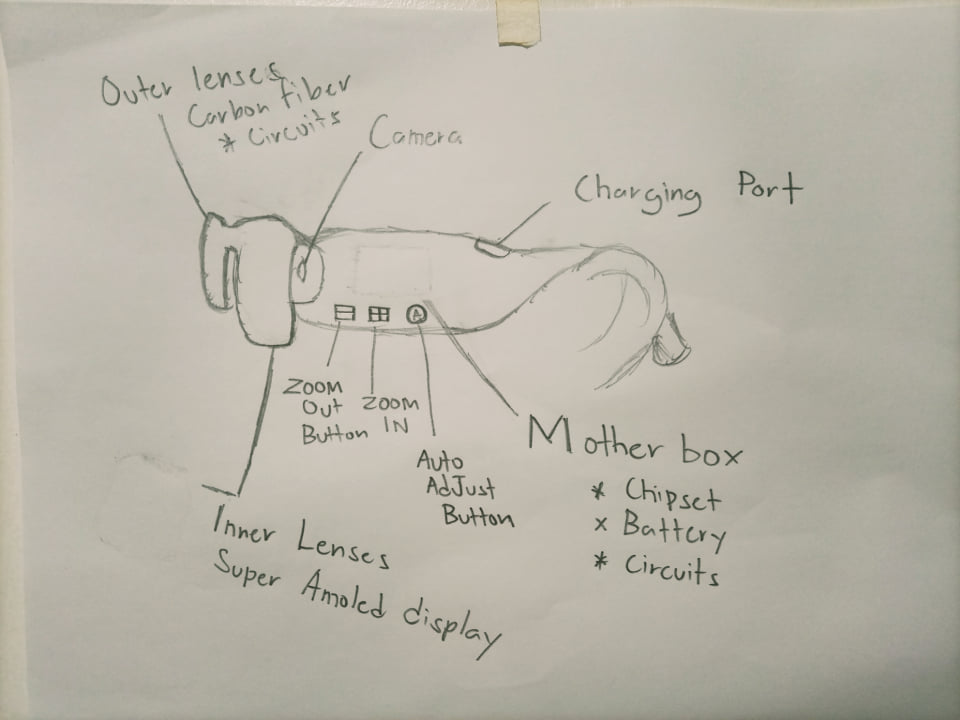 Outer lenses
Carbon fiber
* Circuits
Camera
Charging Port
A
Zoom
Out
Button
Zoom
IN
Auto
AdJust
Button
Mother box
* Chipset
x Battery
* Circuits
Inner Lenses
Super Amoled display